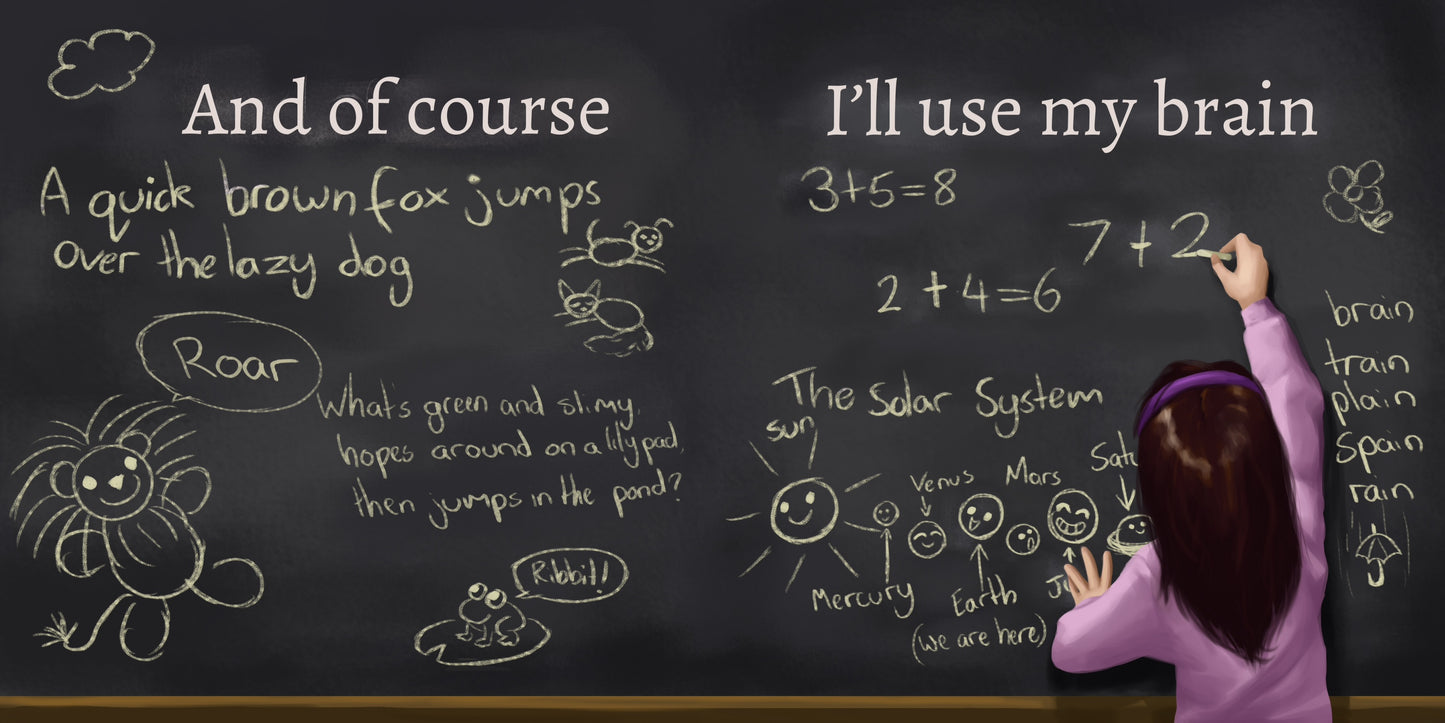 And of course
A quick brown fox jumps
over the lazy dog
Roar
What's green and slimy,
hopes around on a lily pad,
then jumps in the pond?
Ribbit!
I'll use my brain
3+5=8
7+2
2+4=6
The Solar System
sun
Venus
Mars
Satu
Mercury
Earth
(we are here)
Ju
brain
train
plain
Spain
rain